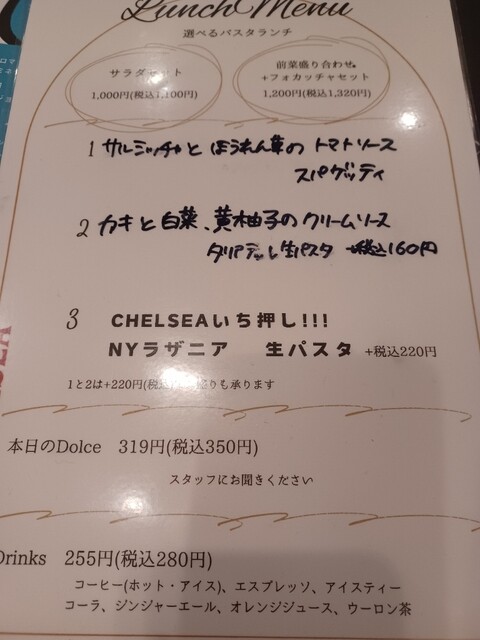 Lunch Menu
選べるパスタランチ
サラダセット
1,000円(税込1,100円)
前菜盛り合わせ
+フォカッチャセット
1,200円(税込1,320円)
1 サルシッチャと ほうれん草の トマトソース
スパゲッティ
2 カキと白菜、黄柚子のクリームソース
タリアテッレ生パスタ +税込160円
3 CHELSEAいち押し!!!
NYラザニア 生パスタ +税込220円
1と2は+220円(税込)
盛りも承ります
本日のDolce 319円(税込350円)
スタッフにお聞きください
Drinks 255円(税込280円)
コーヒー(ホット・アイス)、エスプレッソ、アイスティー
コーラ、ジンジャーエール、オレンジジュース、ウーロン茶